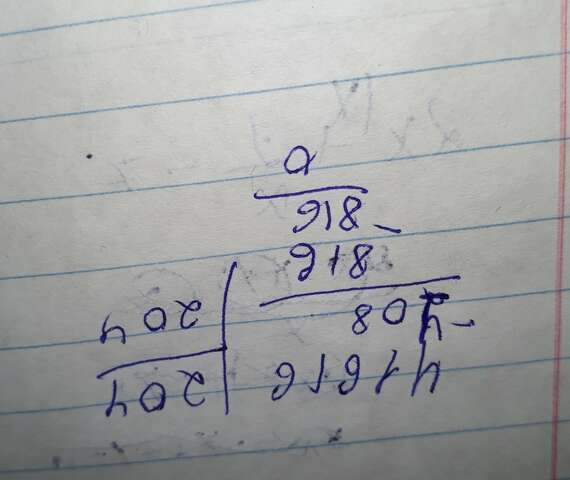 41616 | 204
- 408 | 204
816
- 816
0